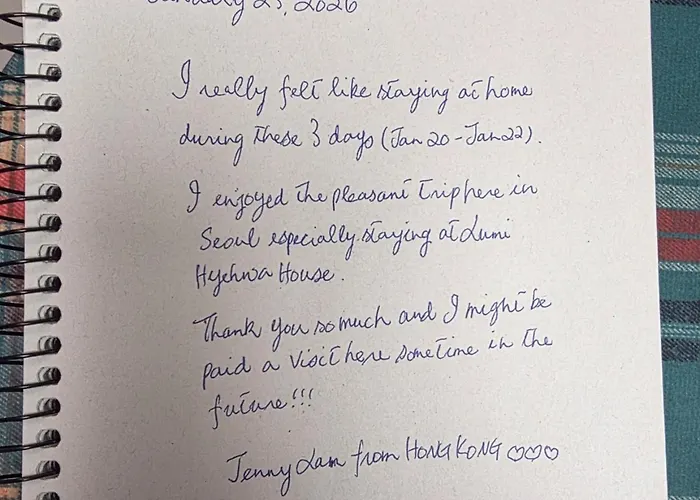 2026
I really felt like staying at home
during these 3 days (Jan 20 - Jan 22).
I enjoyed the pleasant trip here in
Seoul especially staying at Lumi
Hyehwa House.
Thank you so much and I might be
paid a visit here sometime in the
future!!!
Jenny Lam from HONG KONG ♡♡♡